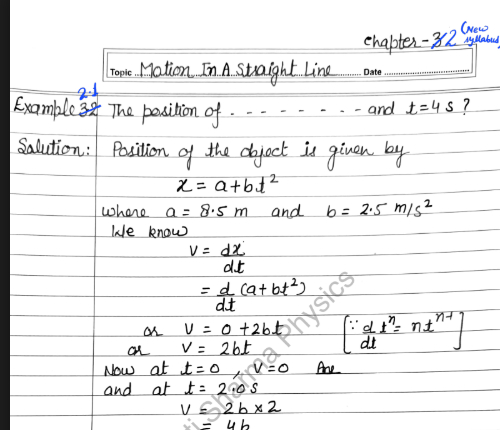 (New
Chapter-32 syllabus)
Topic Motion In A Straight Line Date
2.1
Example 32 The position of - - - - - - - - - and t=4s?
Solution: Position of the object is given by
x = a+bt²
where a = 8.5 m and b = 2.5 m/s²
We know
v = dx/dt
= d/dt (a+bt²)
or v = 0+2bt [∵ d/dt tⁿ = ntⁿ⁻¹]
or v = 2bt
Now at t=0, v=0 Ans
and at t = 2.0s
v = 2b×2
= 4b
Sharma Physics